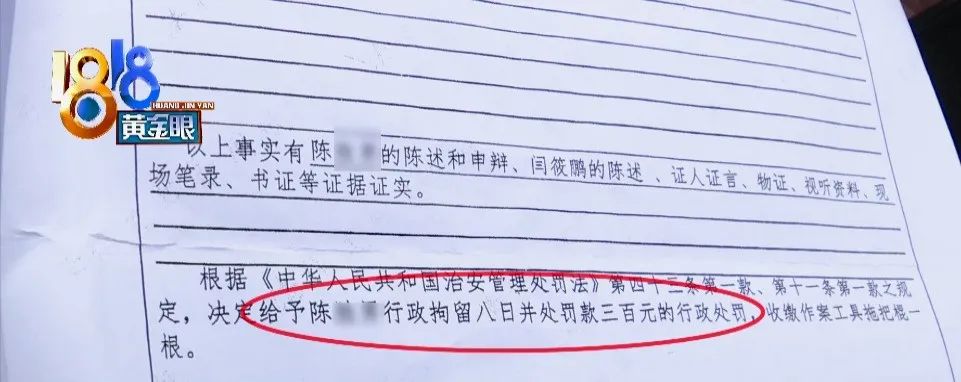 1818
HUANG JIN YAN
黄金眼
以上事实有陈 的陈述和申辩、闫筱鹏的陈述、证人证言、物证、视听资料、现
场笔录、书证等证据证实。
根据《中华人民共和国治安管理处罚法》第四十三条第一款、第十一条第一款之规
定，决定给予陈 行政拘留八日并处罚款三百元的行政处罚，收缴作案工具拖把棍一
根。